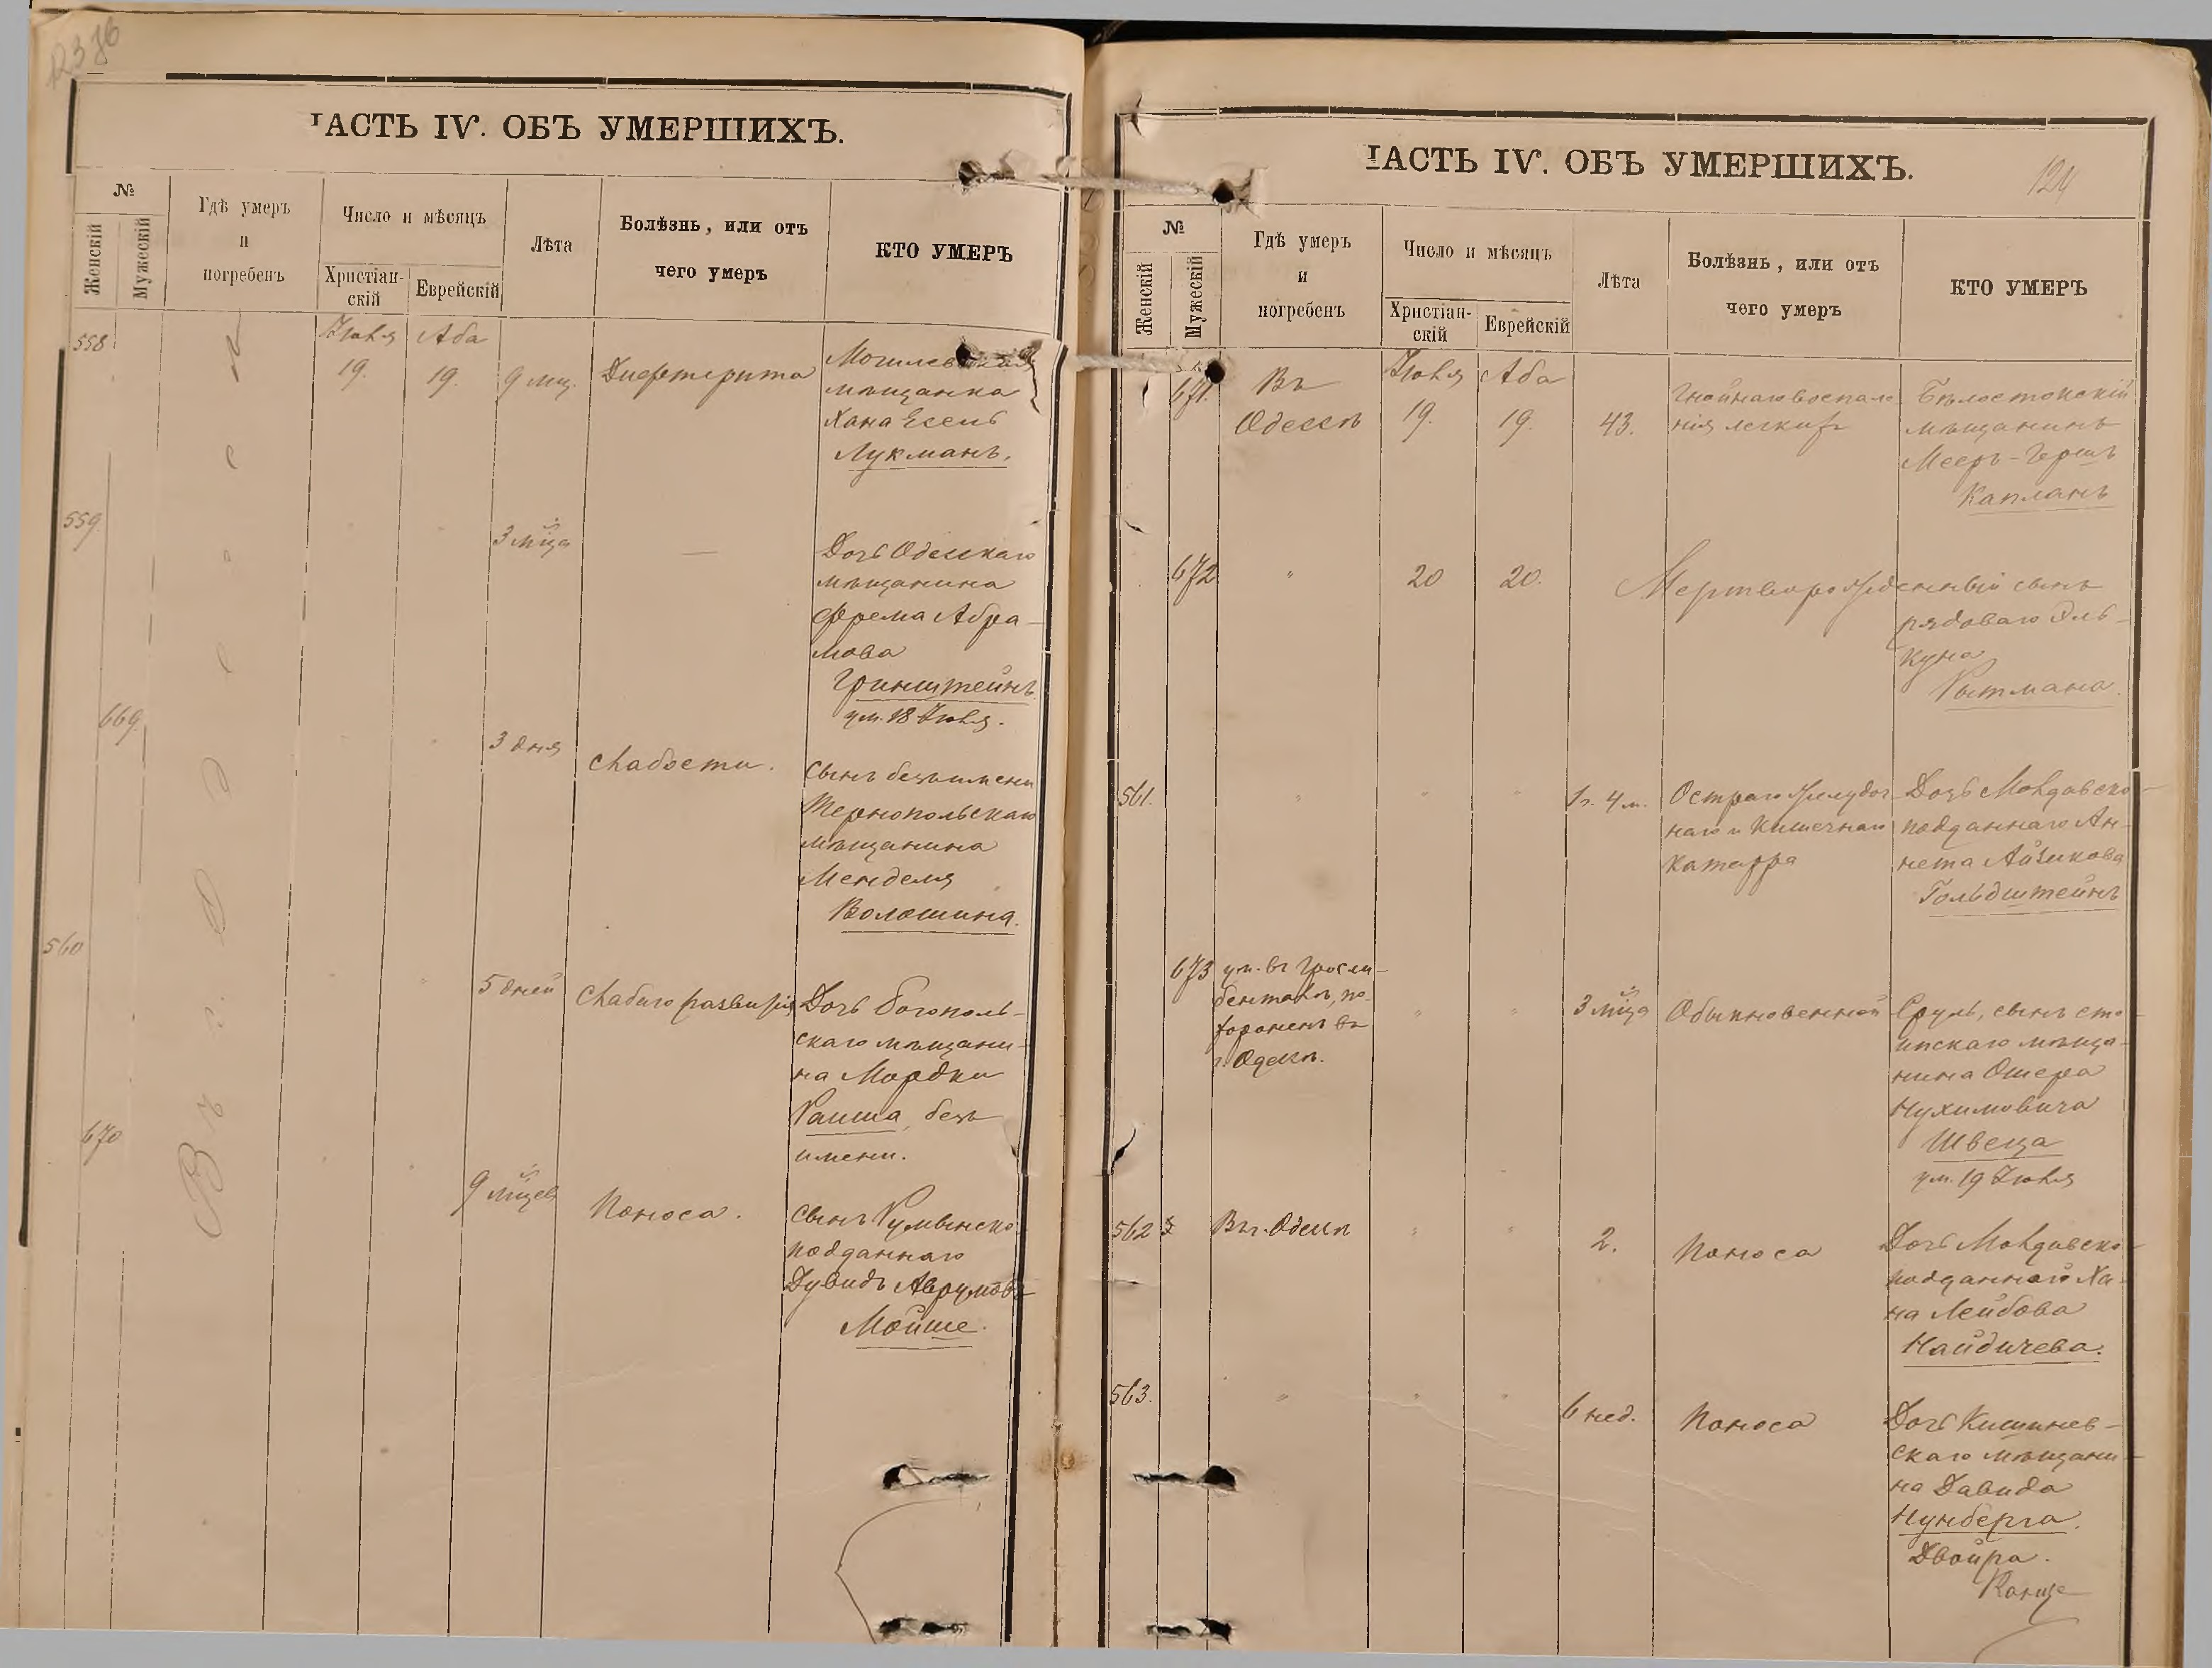 1376
ЧАСТЬ IV. ОБЪ УМЕРШИХЪ.
№
Женскій
Мужескій
Гдѣ умеръ
и
погребенъ
Число и мѣсяцъ
Христіан-
скій
Еврейскій
Лѣта
Болѣзнь, или отъ
чего умеръ
КТО УМЕРЪ
558
Въ г. Одессѣ
Іюля
19.
Аба
19.
9 мц.
Дифтерита
Могилевская
мѣщанка
Хана Есель
Лукманъ.
559
" "
3 мѣца
—
Дочь Одесскаго
мѣщанина
Фрема Абра-
мова
Гринштейнъ.
ум. 18 Іюля.
669.
" "
3 дня
Слабости.
Сынъ безъ имени
Тернопольскаго
мѣщанина
Менделя
Волошина.
560
" "
5 дней
Слабаго развитія
Дочь Богополь-
скаго мѣщани-
на Мордки
Раиша, безъ
имени.
670
" "
9 мѣцев
Поноса.
Сынъ Румынско
подданнаго
Дувидъ Аврумовъ
Мойше.
ЧАСТЬ IV. ОБЪ УМЕРШИХЪ.
124
№
Женскій
Мужескій
Гдѣ умеръ
и
погребенъ
Число и мѣсяцъ
Христіан-
скій
Еврейскій
Лѣта
Болѣзнь, или отъ
чего умеръ
КТО УМЕРЪ
671.
Въ
Одессѣ
Іюля
19.
Аба
19.
43.
Гнойнаго воспале
нія легкихъ
Бѣлостокскій
мѣщанинъ
Мееръ-Гершъ
Капланъ
672
"
20
20.
Мертворожденный сынъ
рядоваго Эль-
куна
Рытмана.
561.
" " "
1 г. 4 м.
Остраго желудоч-
наго и кишечнаго
катарра
Дочь Молдавско-
подданнаго Ан-
нета Айзикова
Гольдштейнъ
673
ум. въ Гросли-
бенталѣ, по-
хороненъ въ
г. Одессѣ.
" "
3 мѣца
Обыкновенной
Сруль, сынъ
мѣща-
нина Ошера
Нухимовича
Швеца
ум. 19 Іюля
562
Въ г. Одессѣ
" "
2.
Поноса
Дочь Молдавско-
подданнаго Ха-
на Лейбова
Найдичева.
563.
" " "
6 нед.
Поноса
Дочь Кишинев-
скаго мѣщани-
на Давида
Нунберга.
Двойра.